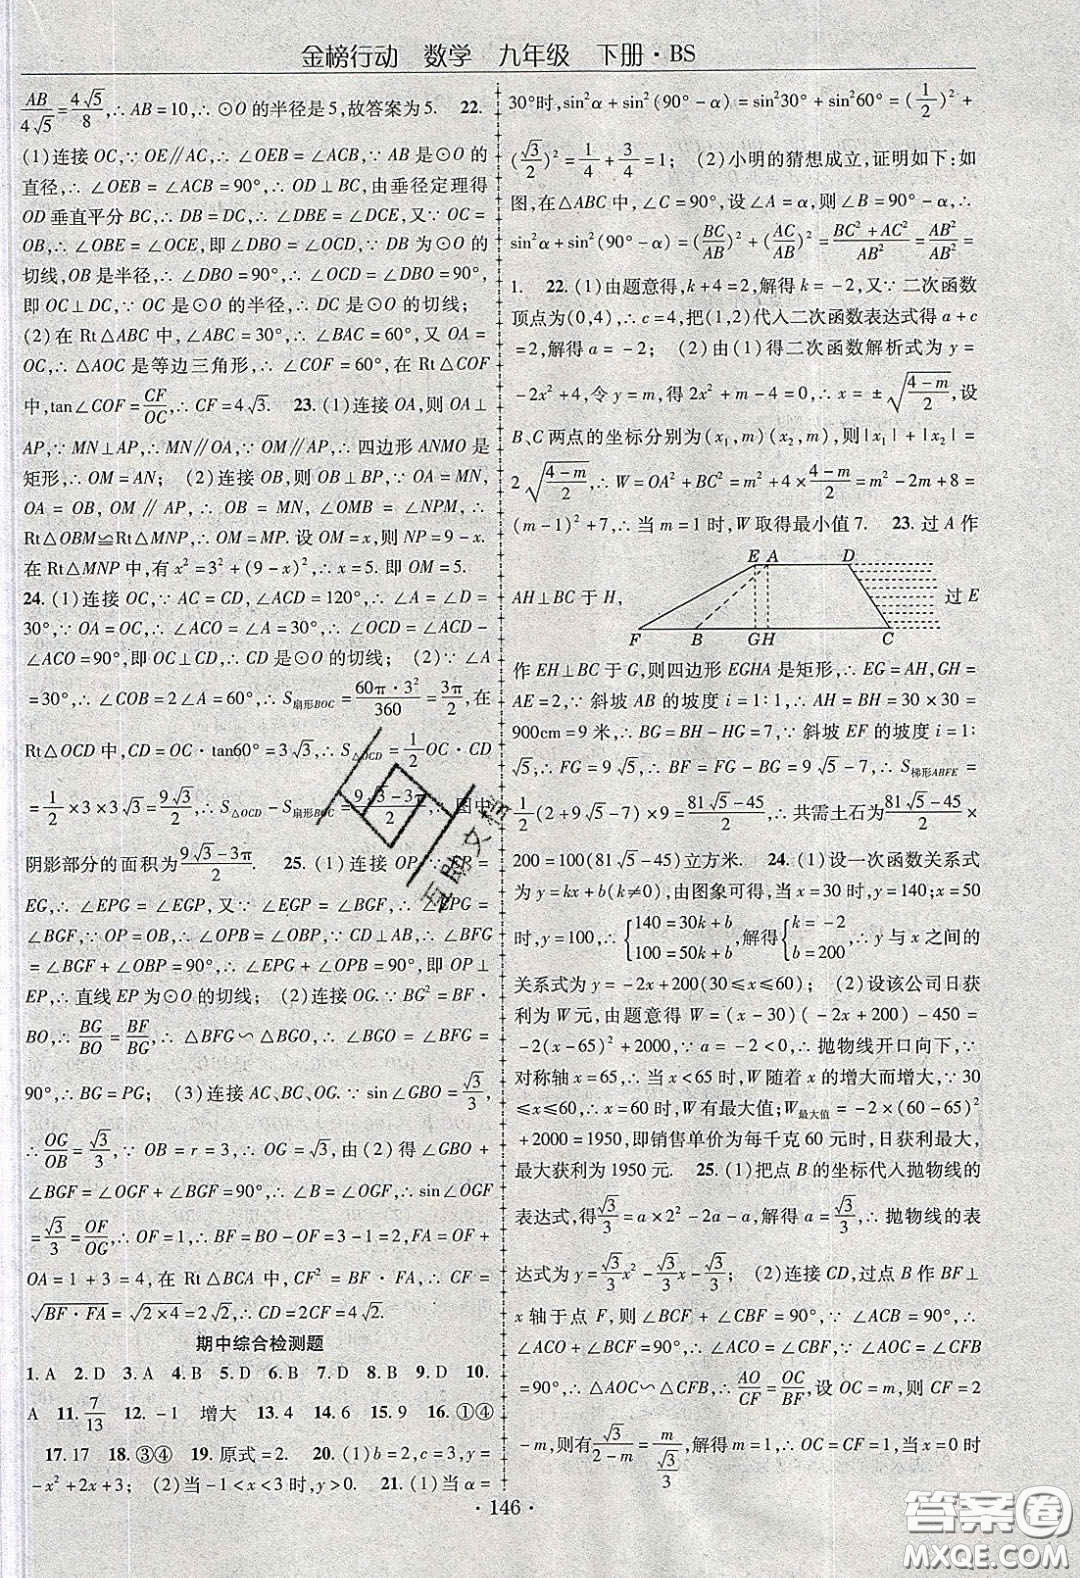 金榜行动 数学 九年级 下册·BS
AB/4√5=4√5/8,∴AB=10,∴⊙O的半径是5,故答案为5. 22.
(1)连接OC,∵OE∥AC,∴∠OEB=∠ACB,∵AB是⊙O的
直径,∴∠OEB=∠ACB=90°,∴OD⊥BC,由垂径定理得
OD垂直平分BC,∴DB=DC,∴∠DBE=∠DCE,又∵OC=
OB,∴∠OBE=∠OCE,即∠DBO=∠OCD,∵DB为⊙O的
切线,OB是半径,∴∠DBO=90°,∴∠OCD=∠DBO=90°,
即OC⊥DC,∵OC是⊙O的半径,∴DC是⊙O的切线;
(2)在Rt△ABC中,∠ABC=30°,∴∠BAC=60°,又OA=
OC,∴△AOC是等边三角形,∴∠COF=60°,在Rt△COF
中,tan∠COF=CF/OC,∴CF=4√3. 23.(1)连接OA,则OA⊥
AP,∵MN⊥AP,∴MN∥OA,∵OM∥AP,∴四边形ANMO是
矩形,∴OM=AN;(2)连接OB,则OB⊥BP,∵OA=MN,
OA=OB,OM∥AP,∴OB=MN,∠OMB=∠NPM,∴
Rt△OBM≌Rt△MNP,∴OM=MP.设OM=x,则NP=9-x.
在Rt△MNP中,有x²=3²+(9-x)²,∴x=5.即OM=5.
24.(1)连接OC,∵AC=CD,∠ACD=120°,∴∠A=∠D=
30°,∵OA=OC,∴∠ACO=∠A=30°,∴∠OCD=∠ACD-
∠ACO=90°,即OC⊥CD,∴CD是⊙O的切线;(2)∵∠A
=30°,∴∠COB=2∠A=60°,∴S扇形BOC=60π·3²/360=3π/2,在
Rt△OCD中,CD=OC·tan60°=3√3,∴S△OCD=1/2OC·CD
=1/2×3×3√3=9√3/2,∴S△OCD-S扇形BOC=9√3-3π/2,∴图中
阴影部分的面积为9√3-3π/2. 25.(1)连接OP,∵EP=
EG,∴∠EPG=∠EGP,又∵∠EGP=∠BGF,∴∠EPG=
∠BGF,∵OP=OB,∴∠OPB=∠OBP,∵CD⊥AB,∴∠BFG
=∠BGF+∠OBP=90°,∴∠EPG+∠OPB=90°,即OP⊥
EP,∴直线EP为⊙O的切线;(2)连接OG.∵BG²=BF·
BO,∴BG/BO=BF/BG,∴△BFG∽△BGO,∴∠BGO=∠BFG=
90°,∴BG=PG;(3)连接AC、BC、OG.∵sin∠GBO=√3/3,
∴OG/OB=√3/3,∵OB=r=3,∴OG=√3,由(2)得∠GBO+
∠BGF=∠OGF+∠BGF=90°,∴∠B=∠OGF,∴sin∠OGF
=√3/3=OF/OG,∴OF=1,∴BF=BO-OF=3-1=2,FA=OF+
OA=1+3=4,在Rt△BCA中,CF²=BF·FA,∴CF=
√BF·FA=√2×4=2√2.∴CD=2CF=4√2.
期中综合检测题
1.A 2.D 3.A 4.B 5.D 6.B 7.D 8.B 9.D 10.
A 11.7/13 12.-1 增大 13.4 14.6 15.9 16.①④
17.17 18.③④ 19.原式=2. 20.(1)b=2,c=3,y=
-x²+2x+3;(2)当-1<x<3时,y>0. 21.(1)当α=
30°时,sin²α+sin²(90°-α)=sin²30°+sin²60°=(1/2)²+
(√3/2)²=1/4+3/4=1;(2)小明的猜想成立,证明如下:如
图,在△ABC中,∠C=90°,设∠A=α,则∠B=90°-α,∴
sin²α+sin²(90°-α)=(BC/AB)²+(AC/AB)²=BC²+AC²/AB²=AB²/AB²=
1. 22.(1)由题意得,k+4=2,解得k=-2,又∵二次函数
顶点为(0,4),∴c=4,把(1,2)代入二次函数表达式得a+c
=2,解得a=-2;(2)由(1)得二次函数解析式为y=
-2x²+4,令y=m,得2x²+m-4=0,∴x=±√4-m/2,设
B、C两点的坐标分别为(x₁,m)(x₂,m),则|x₁|+|x₂|=
2√4-m/2,∴W=OA²+BC²=m²+4×4-m/2=m²-2m+8=
(m-1)²+7,∴当m=1时,W取得最小值7. 23.过A作
E A D
AH⊥BC于H, 过E
F B G H C
作EH⊥BC于G,则四边形EGHA是矩形,∴EG=AH,GH=
AE=2,∵斜坡AB的坡度i=1:1,∴AH=BH=30×30=
900cm=9米,∴BG=BH-HG=7,∵斜坡EF的坡度i=1:
√5,∴FG=9√5,∴BF=FG-BG=9√5-7,∴S梯形ABFE=
1/2(2+9√5-7)×9=81√5-45/2,∴共需土石为81√5-45/2×
200=100(81√5-45)立方米. 24.(1)设一次函数关系式
为y=kx+b(k≠0),由图象可得,当x=30时,y=140;x=50
时,y=100,∴{140=30k+b 100=50k+b,解得{k=-2 b=200,∴y与x之间的
关系式为y=-2x+200(30≤x≤60);(2)设该公司日获
利为W元,由题意得W=(x-30)(-2x+200)-450=
-2(x-65)²+2000,∵a=-2<0,∴抛物线开口向下,∵
对称轴x=65,∴当x<65时,W随着x的增大而增大,∵30
≤x≤60,∴x=60时,W有最大值;W最大值=-2×(60-65)²
+2000=1950,即销售单价为每千克60元时,日获利最大,
最大获利为1950元. 25.(1)把点B的坐标代入抛物线的
表达式,得√3/3=a×2²-2a-a,解得a=√3/3,∴抛物线的表
达式为y=√3/3x²-√3/3x-√3/3;(2)连接CD,过点B作BF⊥
x轴于点F,则∠BCF+∠CBF=90°,∵∠ACB=90°,∴
∠ACO+∠BCF=90°,∴∠ACO=∠CBF,∵∠AOC=∠CFB
=90°,∴△AOC∽△CFB,∴AO/CF=OC/BF,设OC=m,则CF=2
-m,则有√3/2-m=m/√3/3,解得m=1,∴OC=CF=1,当x=0时
·146·
答案圈
MXQE.COM